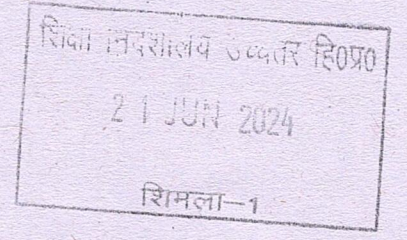 शिक्षा निदेशालय उच्चतर हि0प्र0
21 JUN 2024
शिमला-1